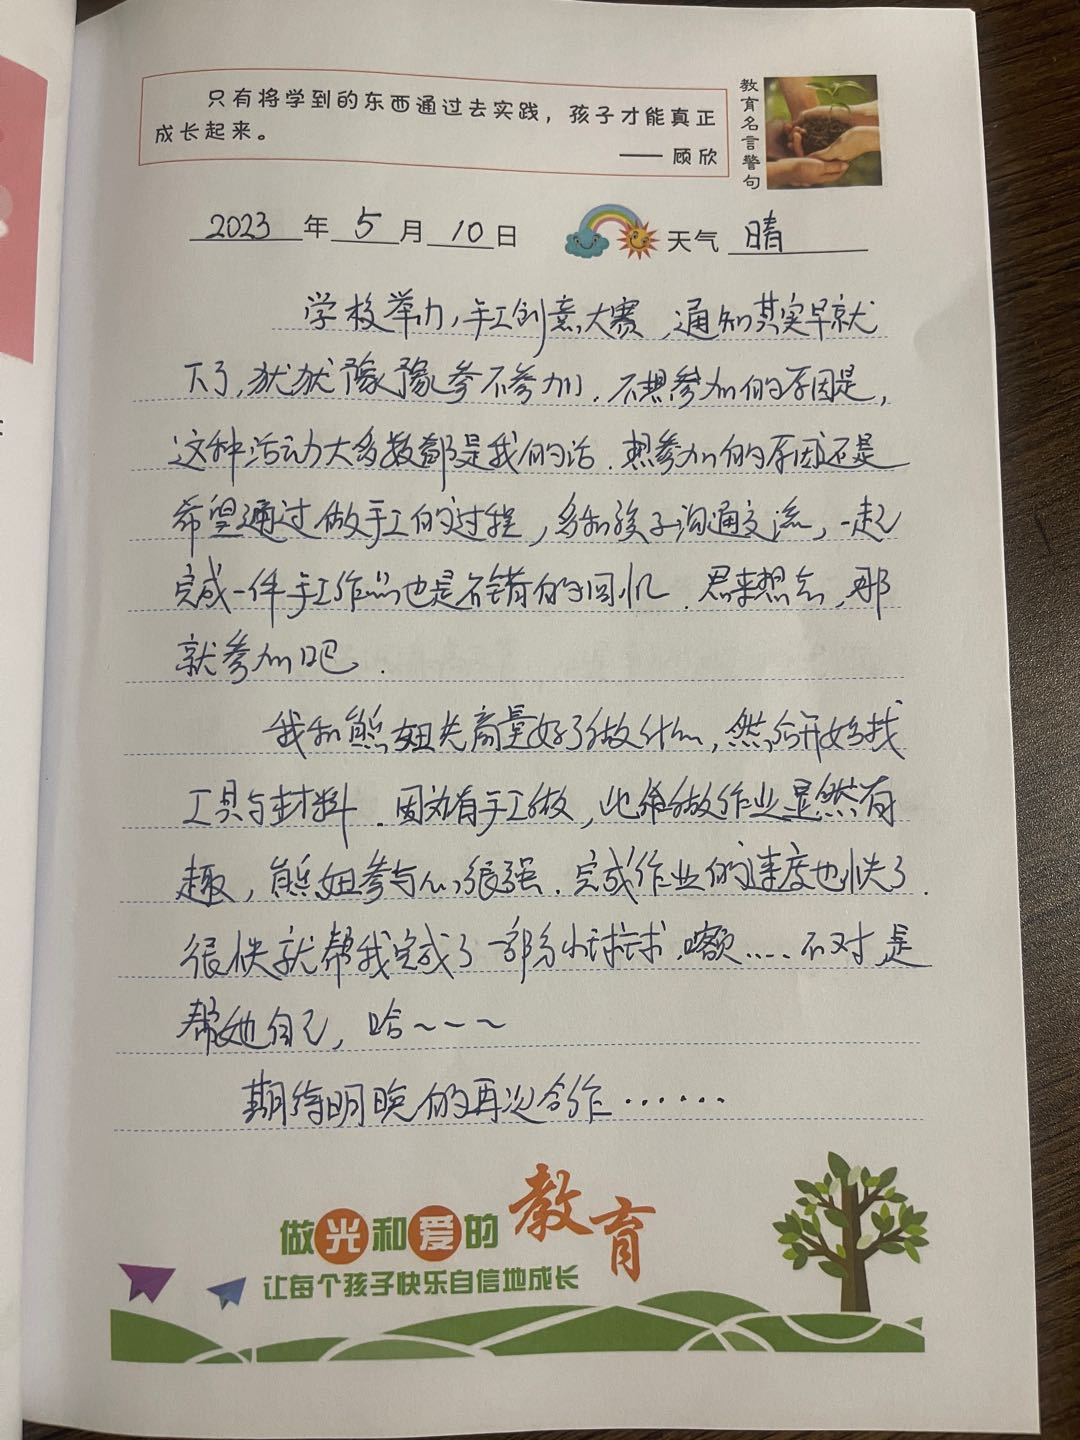 只有将学到的东西通过去实践，孩子才能真正
成长起来。
—— 顾欣
教育名言警句
2023年5月10日 天气 晴
学校举办手工创意大赛，通知其实早就
下了，犹犹豫豫参不参加，不想参加的原因是，
这种活动大多数都是我的活，想参加的原因还是
希望通过做手工的过程，多和孩子沟通交流，一起
完成一件手工作品也是不错的回忆，思来想去，那
就参加吧．
我和熊妞先商量好了做什么，然后开始找
工具与材料．因为有手工做，比给做作业显然有
趣，熊妞参与心很强．完成作业的速度也快了．
很快就帮我完成了一部分小球球，噢……不对，是
帮她自己，哈~~~
期待明晚的再次合作······
做光和爱的教育
让每个孩子快乐自信地成长